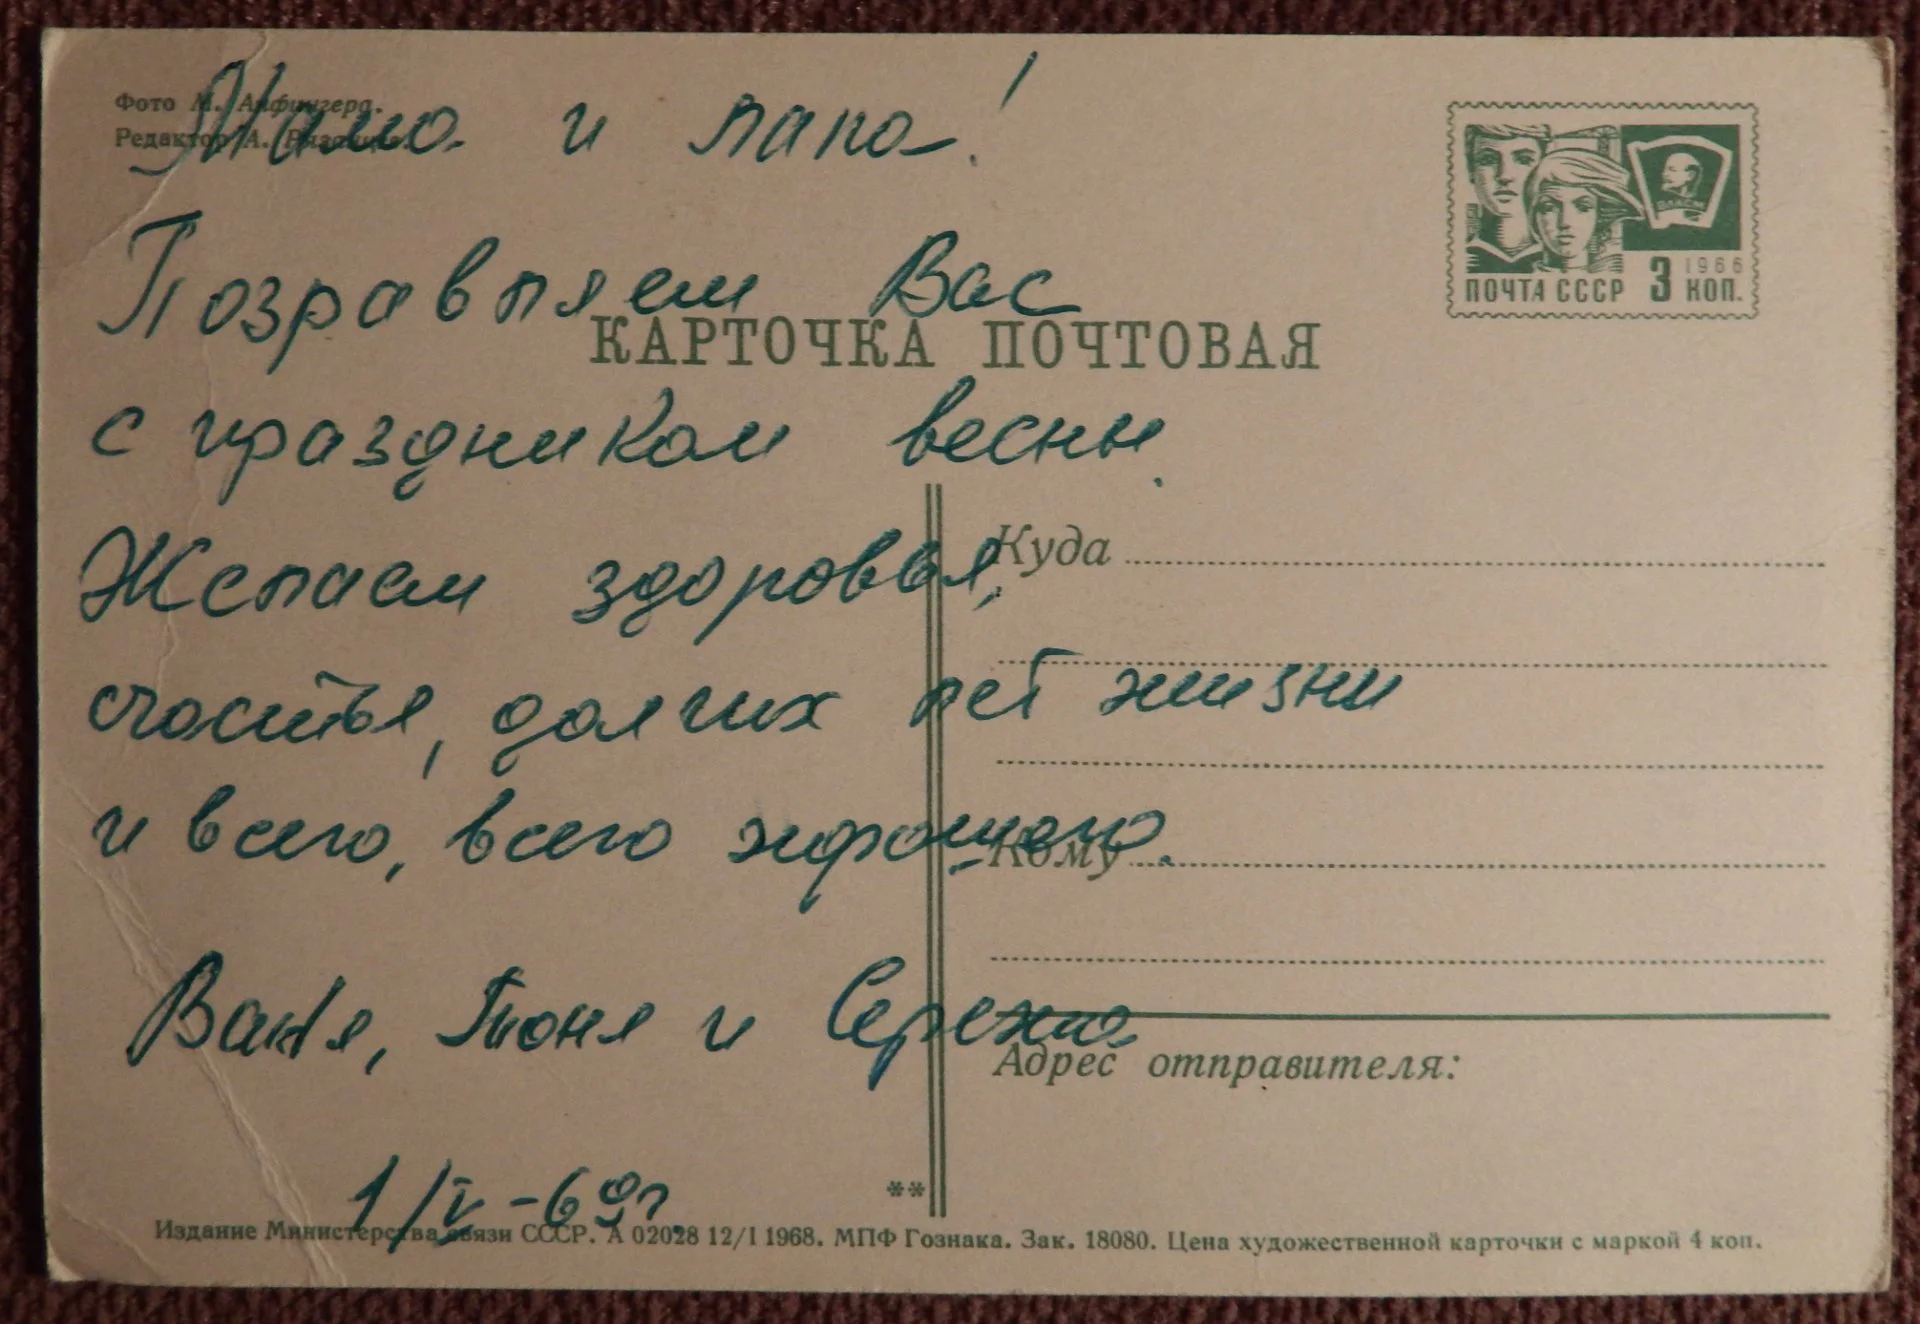 Фото М. Альфингера.
Редактор А. Рязанцев.
Мама и папа!
Позравляем Вас
КАРТОЧКА ПОЧТОВАЯ
с праздником весны.
Желаем здоровья,
счастья, долгих лет жизни
и всего, всего хорошего.
Ваня, Тоня и Сережа
1/V-69г.
ВЛКСМ
1966
ПОЧТА СССР 3 КОП.
Куда
Кому
Адрес отправителя:
**
Издание Министерства связи СССР. А 02028 12/I 1968. МПФ Гознака. Зак. 18080. Цена художественной карточки с маркой 4 коп.